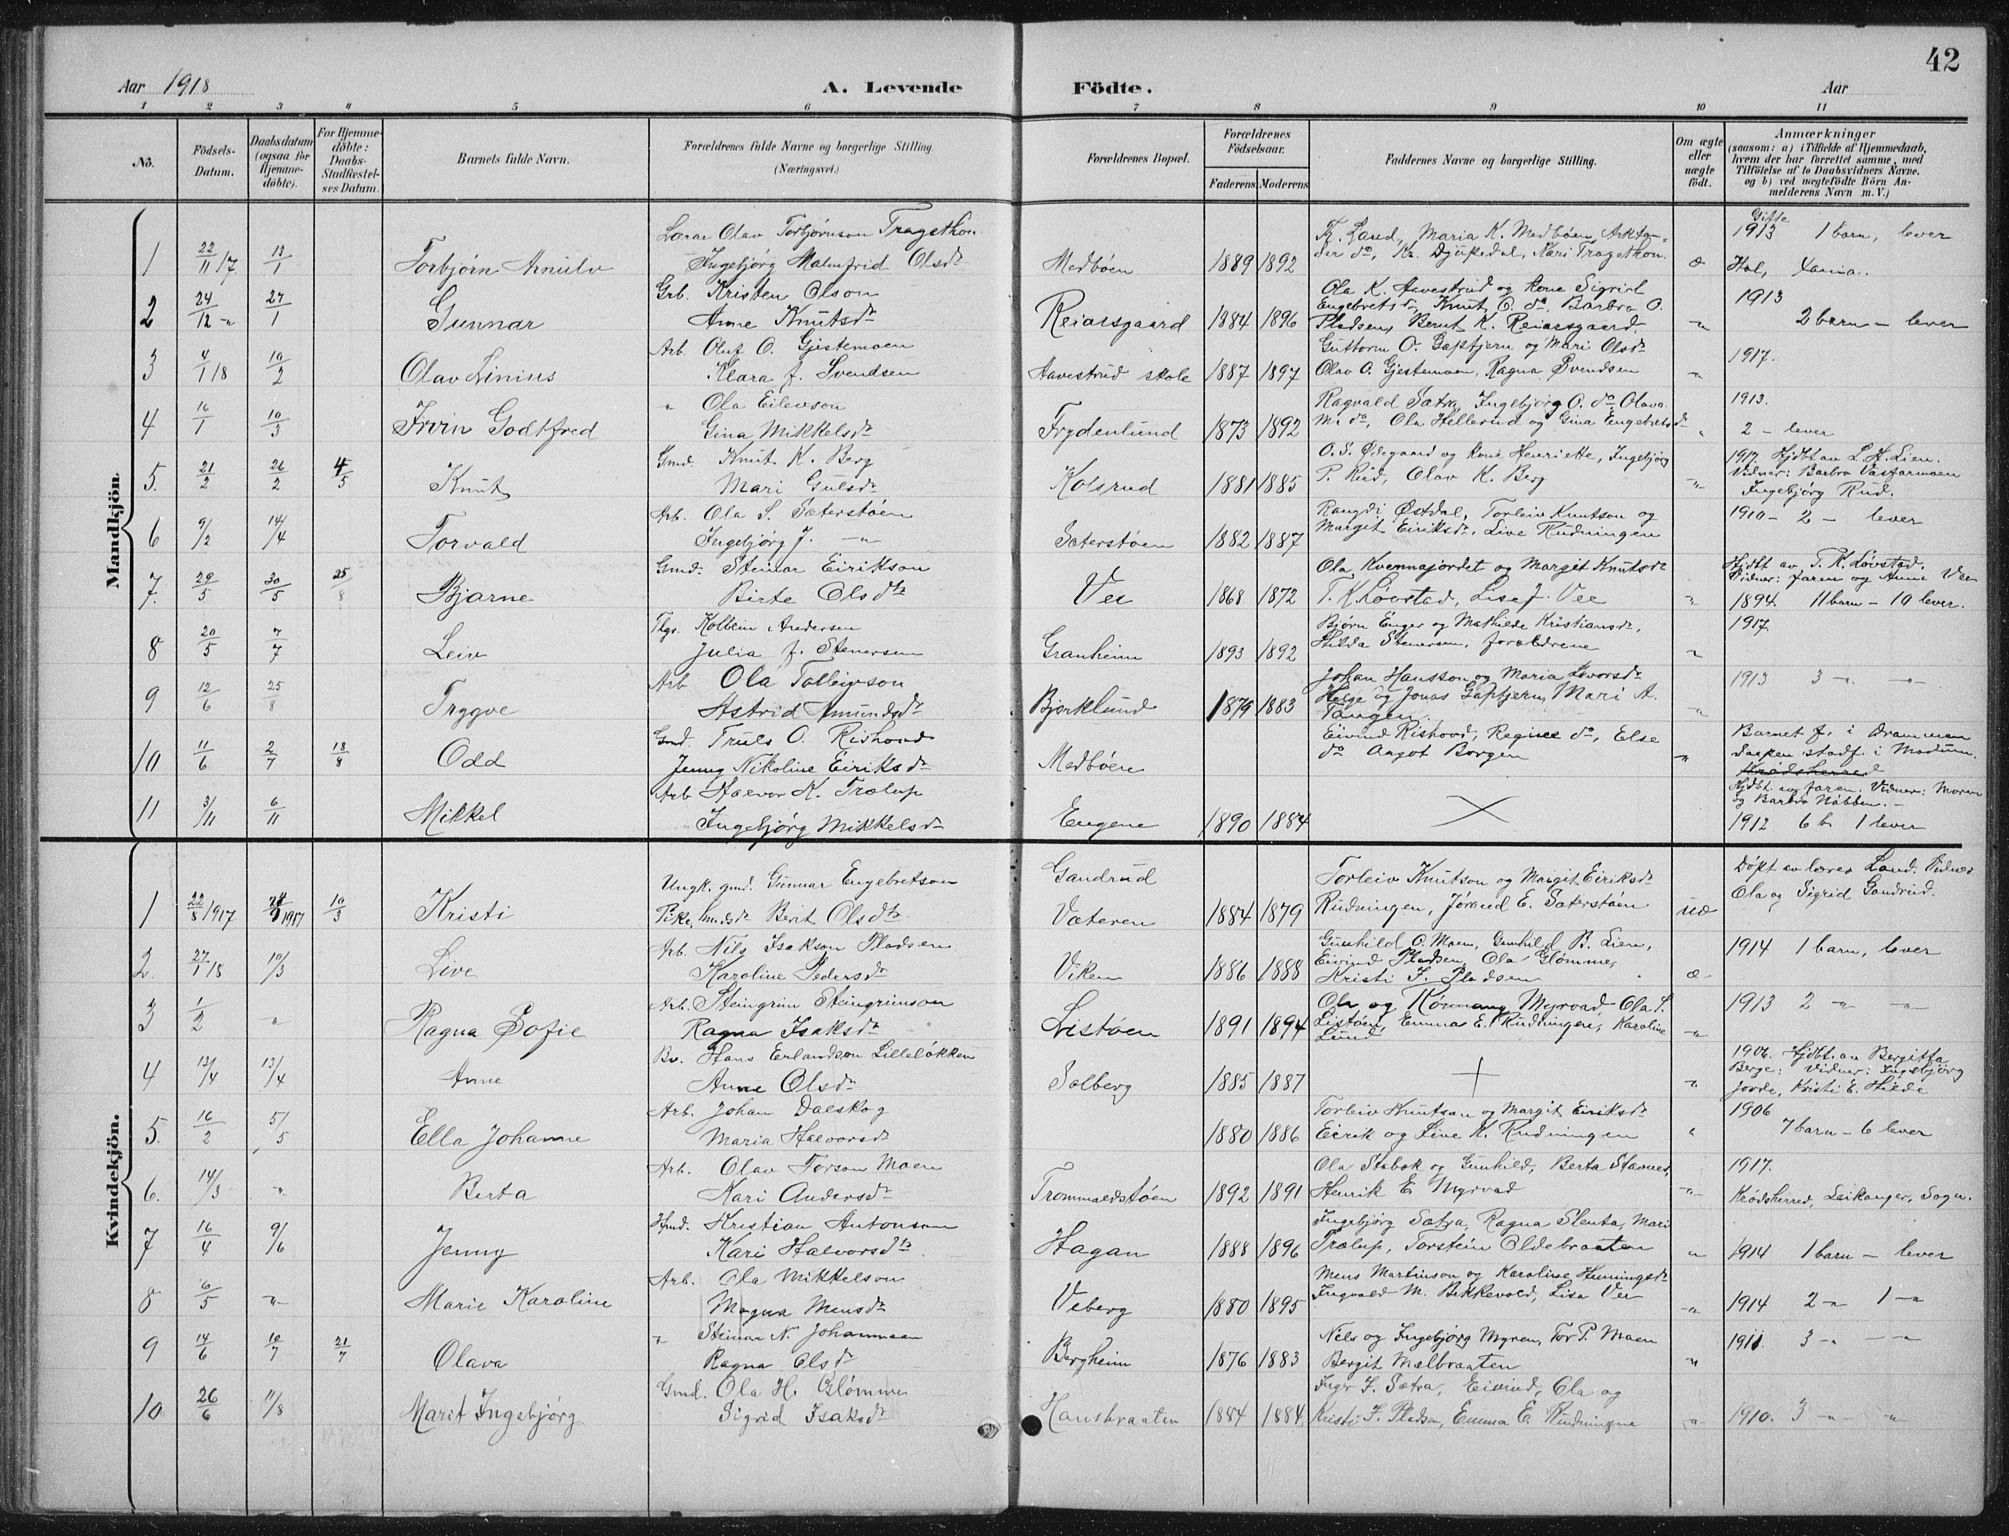 42
Aar 1918 A. Levende Födte. Aar
1 2 3 4 5 6 7 8 9 10 11
No. Födsels-Datum. Daabsdatum (ogsaa for Hjemmedöbte). For Hjemmedöbte: Daabs-Stadfæstelses Datum. Barnets fulde Navn. Forældrenes fulde Navne og borgerlige Stilling. (Næringsvei.) Forældrenes Bopæl. Forældrenes Födselsaar. Faderens Moderens Faddernes Navne og borgerlige Stilling. Om ægte eller uægte födt. Anmærkninger (saasom: a) i Tilfælde af Hjemmedaab, hvem der har forrettet samme, med Tilföielse af to Daabsvidners Navne. og b) ved uægtefödte Börn Anmelderens Navn m. V.)
Mandkjön.
1 22/11 17 13/1 Torbjörn Arnulv
Lærer Olav Torbjörnson Tragethon
Ingebjörg Malmfrid Olsdr
Medböen 1889 1892
Maria K. Medböen
do, Kr. Djupedal, Kari Tragethon
æ
Gifte 1913 1 barn, lever
Hol,
2 24/12 -"- 27/1 Gunnar
Grb. Kristen Olson
Anne Knutsdr
Reiarsgaard 1884 1896
Ola K. Havestrud og kone Sigrid
Engebretsdr, Knut O. do, Barbro O.
Pladsen, Bernt K. Reiarsgaard
-"-
1913
2 barn - lever
3 4/1 18 10/2 Olav Linius
Arb. Oluf O. Gjestemoen
Klara J. Svendsen
Havestrud skole 1887 1897
Guttorm O. Gaptjern og Mari Olsdr
Olav O. Gjestemoen, Ragna Svendsen
"
1917.
4 16/1 10/3 Irvin Godtfred
" Ola Eilevson
Gina Mikkelsdr
Frydenlund 1873 1892
Ragvald Sætra, Ingebjörg O. do, Olava
M. do, Ola Hellerud og Gina Engebretsdr
"
1913.
2 - lever
5. 21/2 26/2 4/5 Knut
Gmd. Knut K. Berg
Mari Gulsdr
Kolsrud 1881 1885
O. S. Ødegaard og kone Henriette, Ingebjörg
P. Rud, Olav K. Berg
"
1917. Hjdbt av L. H. Lien.
Vidner: Barbro Vasfarmoen
Ingebjörg Rud.
6 9/2 14/4 Torvald
Arb. Ola S. Sæterstöen
Ingebjörg J. -"-
Sæterstöen 1882 1887
Rangdi Østdal, Torleiv Knutson og
Margit Eiriksdr, Live Rudningen
1910 - 2 - lever
7. 29/5 30/5 25/8 Bjarne
Gmd. Steinar Eirikson
Birte Olsdtr
Vee 1868 1872
Ola Kvennajordet og Margit Knutsdr
T. K. Lövstad, Lise J. Vee
"
Hjdbt av T. K. Lövstad.
Vidner: faren og Anne Vee
1894. 11 barn - 10 lever.
8 20/5 7/7 Leiv
Tlgs. Kolbein Andersen
Julia J. Stenersen
Granheim 1893 1892
Björn Enger og Mathilde Kristiansdr,
Hilda Stenersen, forældrene
"
1917.
9 12/6 25/8 Trygve
Arb Ola Tolleivson
Astrid Amundsdr
Bjørklund 1879 1883
Johan Hansson og Maria Levorsdr
Helge og Jonas Gaptjern, Mari A.
Tangen.
"
1913 3 -"- -"-
10 11/6 2/7 18/8 Odd
Gmd. Truls O. Rishovd
Jenny Nikoline Eiriksdr
Medböen
Eivind Rishovd, Regine do, Else
do Aagot Borgen
"
Barnet f. i Drammen
Daaben stadf. i Modum.
11 3/11 6/11 Mikkel
Arb Halvor K. Trælup
Ingebjörg Mikkelsdr
Eugene 1890 1884
Hjdbt av faren. Vidner: Moren
og Barbro Nöbben. -
1912 6 b 1 lever
Kvindekjön.
1 22/8 1917 1917 10/3 Kristi
Ungk. gmd. Gunnar Engebretson
Pike, Berit Olsdtr
Gandrud
Væteren 1884 1879
Torleiv Knutson og Margit Eiriksdr
Rudningen, Jörand E. Sæterstöen
uæ
Döpt av lærer Land. Vidner
Ola og Sigrid Gandrud.
2. 27/1 18 10/3 Live
Arb. Nils Isakson Pladsen
Karoline Pedersdr
Viken 1886 1888
Gunhild O. Moen, Gunhild B. Lien,
Eivind Pladsen, Ola Glömme,
Kristi I. Pladsen
æ
1914 1 barn, lever
3 1/2 " Ragna Sofie
Arb. Steingrim Steingrimson
Ragna Isaksdr
Listöen 1891 1894
Ola og Myrvad, Ola S.
Listöen, Emma E. Rudningen, Karoline
Lund
"
1913 2 -"- -"-
4 13/4 13/4 Anne
Bv. Hans Erlandson Lillelökken
Anne Olsdr
Solberg 1885 1887
"
1906. Hjdbt. av Bergitta
Berge: Vidner: Ingebjörg
Jorde, Kristi E. Hilde
5. 16/2 5/5 Ella Johanne
Arb. Johan Dalskog
Maria Halvorsdr
1880 1886
Torleiv Knutson og Margit Eiriksdr
Eirik og Live K. Rudningen
"
1906
7 barn - 6 lever
6. 14/3 " Berta
Arb. Olav Torson Moen
Kari Andersdr
Trommaldstöen 1892 1891
Ola Stabæk og Gunhild, Berta Stavnes,
Henrik E Myrvad
"
1917.
Krödsherred, Leikanger, Sogn.
7 16/4 9/6 Jenny
Hmd. Kristian Antonsen
Kari Halvorsdtr
Hagan 1888 1896
Ingebjörg Sætra, Ragna Slenta, Mari
Trælup, Torstein Oldebraaten
"
1914 1 barn - lever
8 6/5 " Marie Karoline
Arb. Ola Mikkelson
Magna Mensdr
Veberg 1880 1895
Mens Martinson og Karoline Henningsdr
Ingvald M. Bekkevold, Lisa Vee
"
1914 2 -"- 1 -"-
9 14/6 10/7 21/7 Olava
" Steinar N. Johannesen
Ragna Olsdr
Bergheim 1876 1883
Nils og Ingebjörg Myren, Tor P. Moen
Bergit Mælbraaten
"
1911 3 -"- -"-
10 26/6 11/8 Marit Ingebjörg
Gmd. Ola H. Glömme
Sigrid Isaksdr
Hansbraaten 1884 1884
Inger I. Sætra, Eivind, Ola og
Kristi I. Pladsen, Emma E. Rudningen
"
1910. 3 -"- "